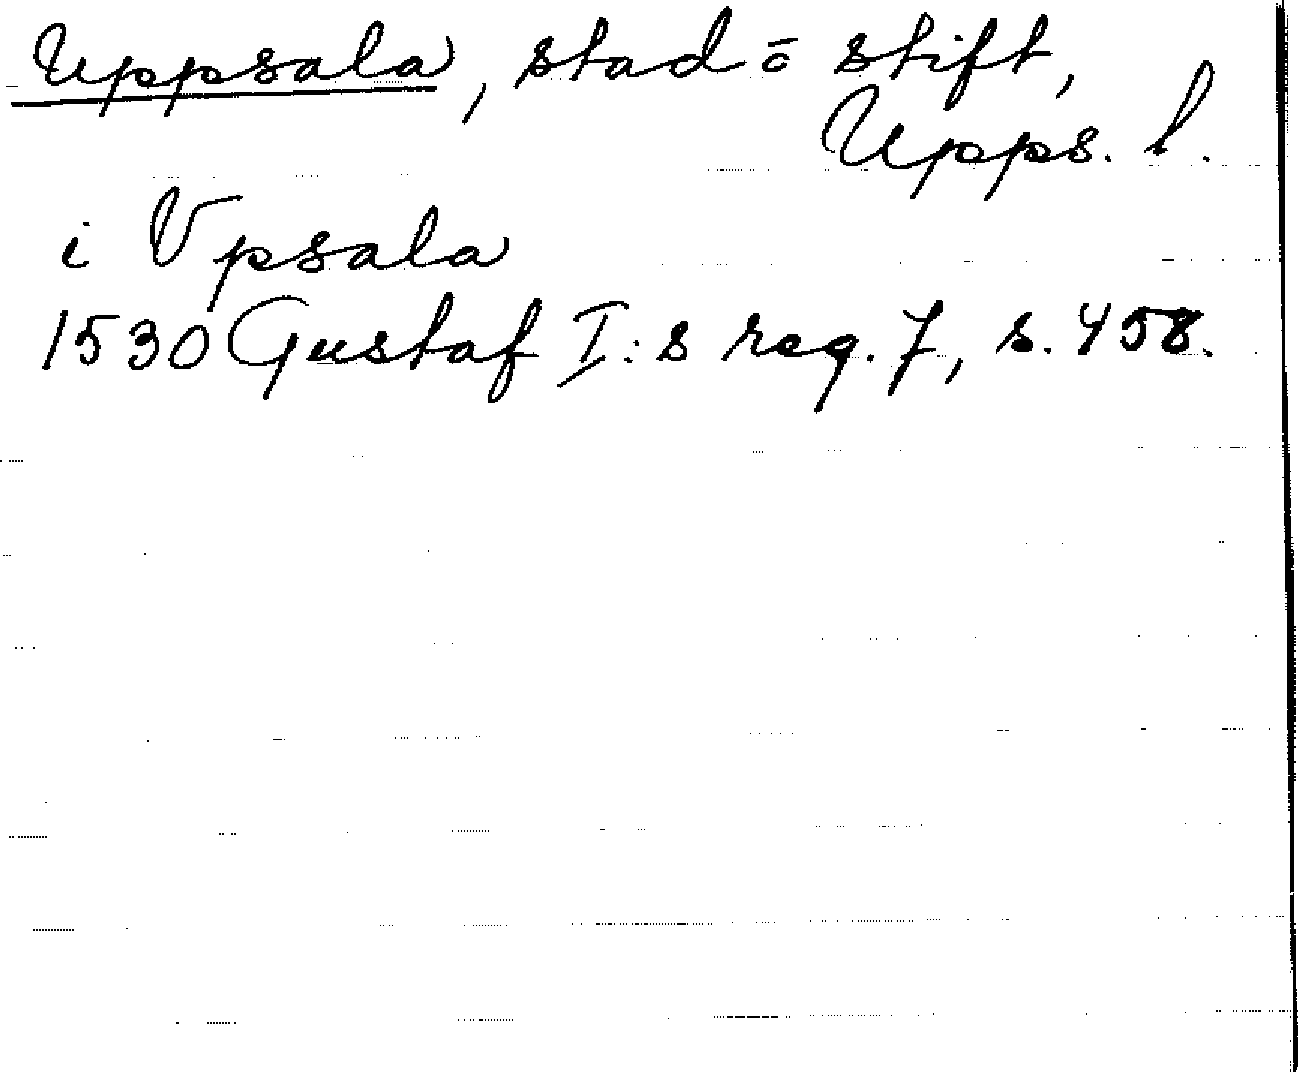 Uppsala, stad ō stift,
Upps. l.
i Vpsala
1530 Gustaf I:s reg. 7, s. 458.